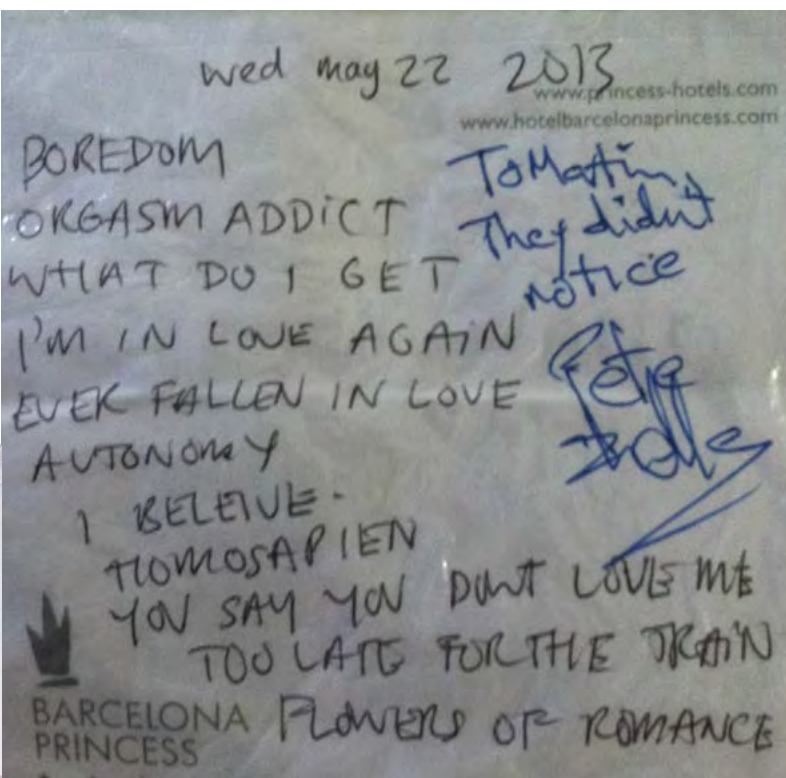 wed may 22 2013
www.princess-hotels.com
www.hotelbarcelonaprincess.com
BOREDOM
ORGASM ADDICT
WHAT DO I GET
I'M IN LOVE AGAIN
EVER FALLEN IN LOVE
AUTONOMY
I BELEIVE.
HOMOSAPIEN
YOU SAY YOU DONT LOVE ME
TOO LATE FOR THE TRAIN
FLOWERS OF ROMANCE
To Martin,
They didnt
notice
Pete
BARCELONA
PRINCESS